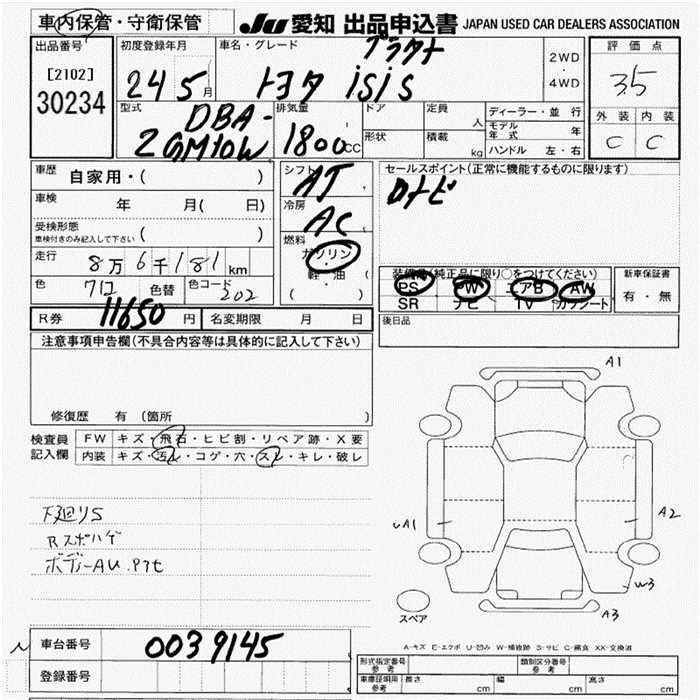 車内保管・守衛保管
JU 愛知 出品申込書 JAPAN USED CAR DEALERS ASSOCIATION
出品番号
[2102]
30234
初度登録年月
24 5 月
車名・グレード
プラタナ
トヨタ isis
2WD
・
4WD
評価点
3.5
外装 内装
C C
型式
DBA-
ZGM10W
排気量
1800 CC
ドア
形状
定員
人
積載
kg
ディーラー・並行
モデル年式 年
ハンドル 左・右
車歴
自家用・( )
車検
年 月( 日)
受検形態
車検付きのみ記入して下さい ( )
走行
8万6千181 km
色
クロ 色替
色コード
202
シフト
AT
冷房
AC
燃料
ガソリン
軽・油
( )
セールスポイント(正常に機能するものに限ります)
ロナビ
装備品(純正品に限り○をつけてください)
PS PW エアB AW
SR ナビ TV カワシート
新車保証書
有・無
R券 11650 円
名変期限 月 日
後日品
注意事項申告欄(不具合内容等は具体的に記入して下さい)
修復歴 有(箇所 )
検査員記入欄
FW キズ・飛石・ヒビ割・リペア跡・X要
内装 キズ・汚レ・コゲ・穴・スレ・キレ・破レ
下廻りS
Rスポハゲ
ボディーAU.アセ
A1
UA1
A2
W3
A3
スペア
A-キズ E-エクボ U-凹み W-補修跡 S-サビ C-腐食 XX-交換済
車台番号
0039145
登録番号
形式指定番号
参考
類別区分番号
参考
車庫証明用
参考
長さ cm
幅 cm
高さ cm